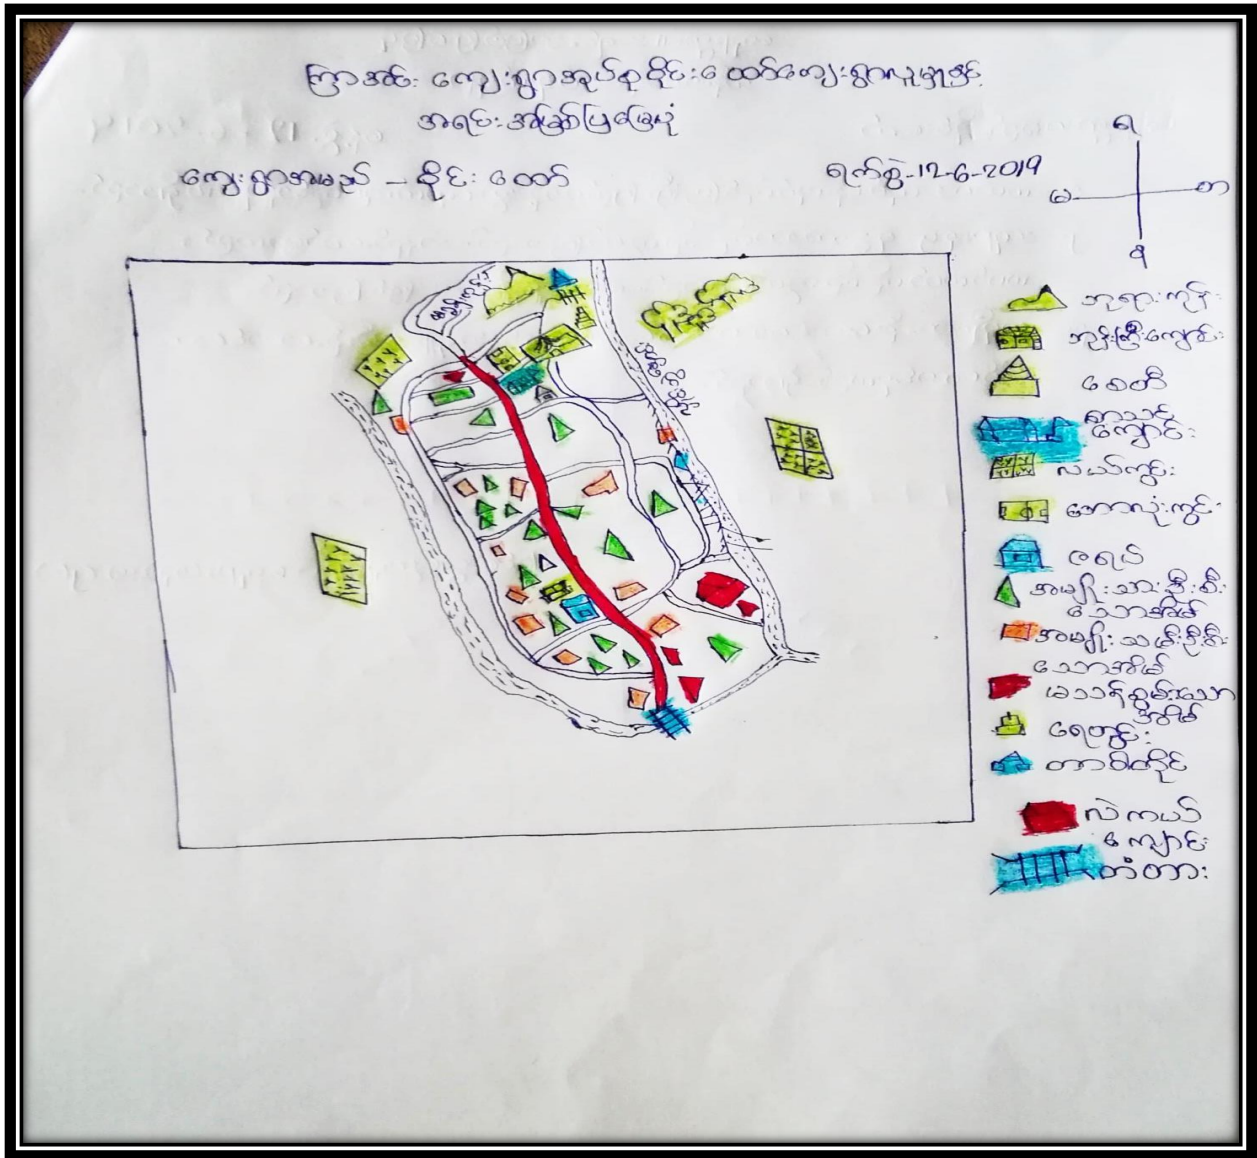 ကြာအင်း ကျေးရွာအုပ်စု စိုင်းထော် ကျေးရွာလူမှုနှင့်
အရင်းအမြစ်ပြမြေပုံ
ကျေးရွာအမည် - စိုင်းထော်
ရက်စွဲ-12-6-2019
ရ
မ
တ
စ
ဘုရားကုန်း
ဘုန်းကြီးကျောင်း
စေတီ
စာသင်
ကျောင်း
လယ်ကွင်း
ဘောလုံးကွင်း
ဇရပ်
အမျိုးသားဦးစီး
သောအိမ်
အမျိုးသမီးဦးစီး
သောအိမ်
မသန်စွမ်းသော
အိမ်
ရေတွင်း
တာဝါတိုင်
ကျောင်း
တံတား